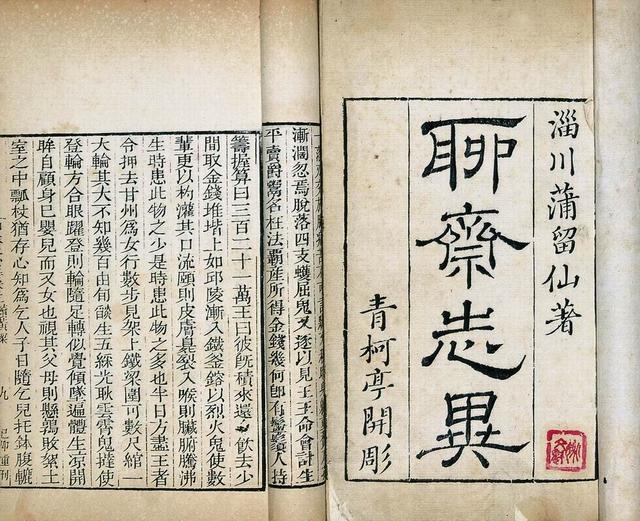 淄川蒲留仙著
聊齋志異
青柯亭開彫
漸濶忽焉脫落四支蠖屈鬼又逐以見王王命會計生
平賣爵鬻名枉法霸產所得金錢幾何即有鬡鬚人持
籌握算曰三百二十一萬王曰彼旣積來還飲去少
間取金錢堆堦上如邱陵漸入鐵釜鎔以烈火鬼使數
輩更以杓灌其口流頤則皮膚臭裂入喉則臟腑騰沸
生時患此物之少是時患此物之多也半日方盡王者
令押去甘州爲女行數步見架上鐵梁圍可數尺綰一
大輪其大不知幾百由旬燄生五綵光耿雲霄鬼撻使
登輪方合眼躍登則輪隨足轉似覺傾墜遍體生涼開
眸自顧身已嬰兒而又女也視其父母則懸鶉敗
室之中瓢杖猶存心知爲乞人子日隨乞兒托鉢腹轆
九